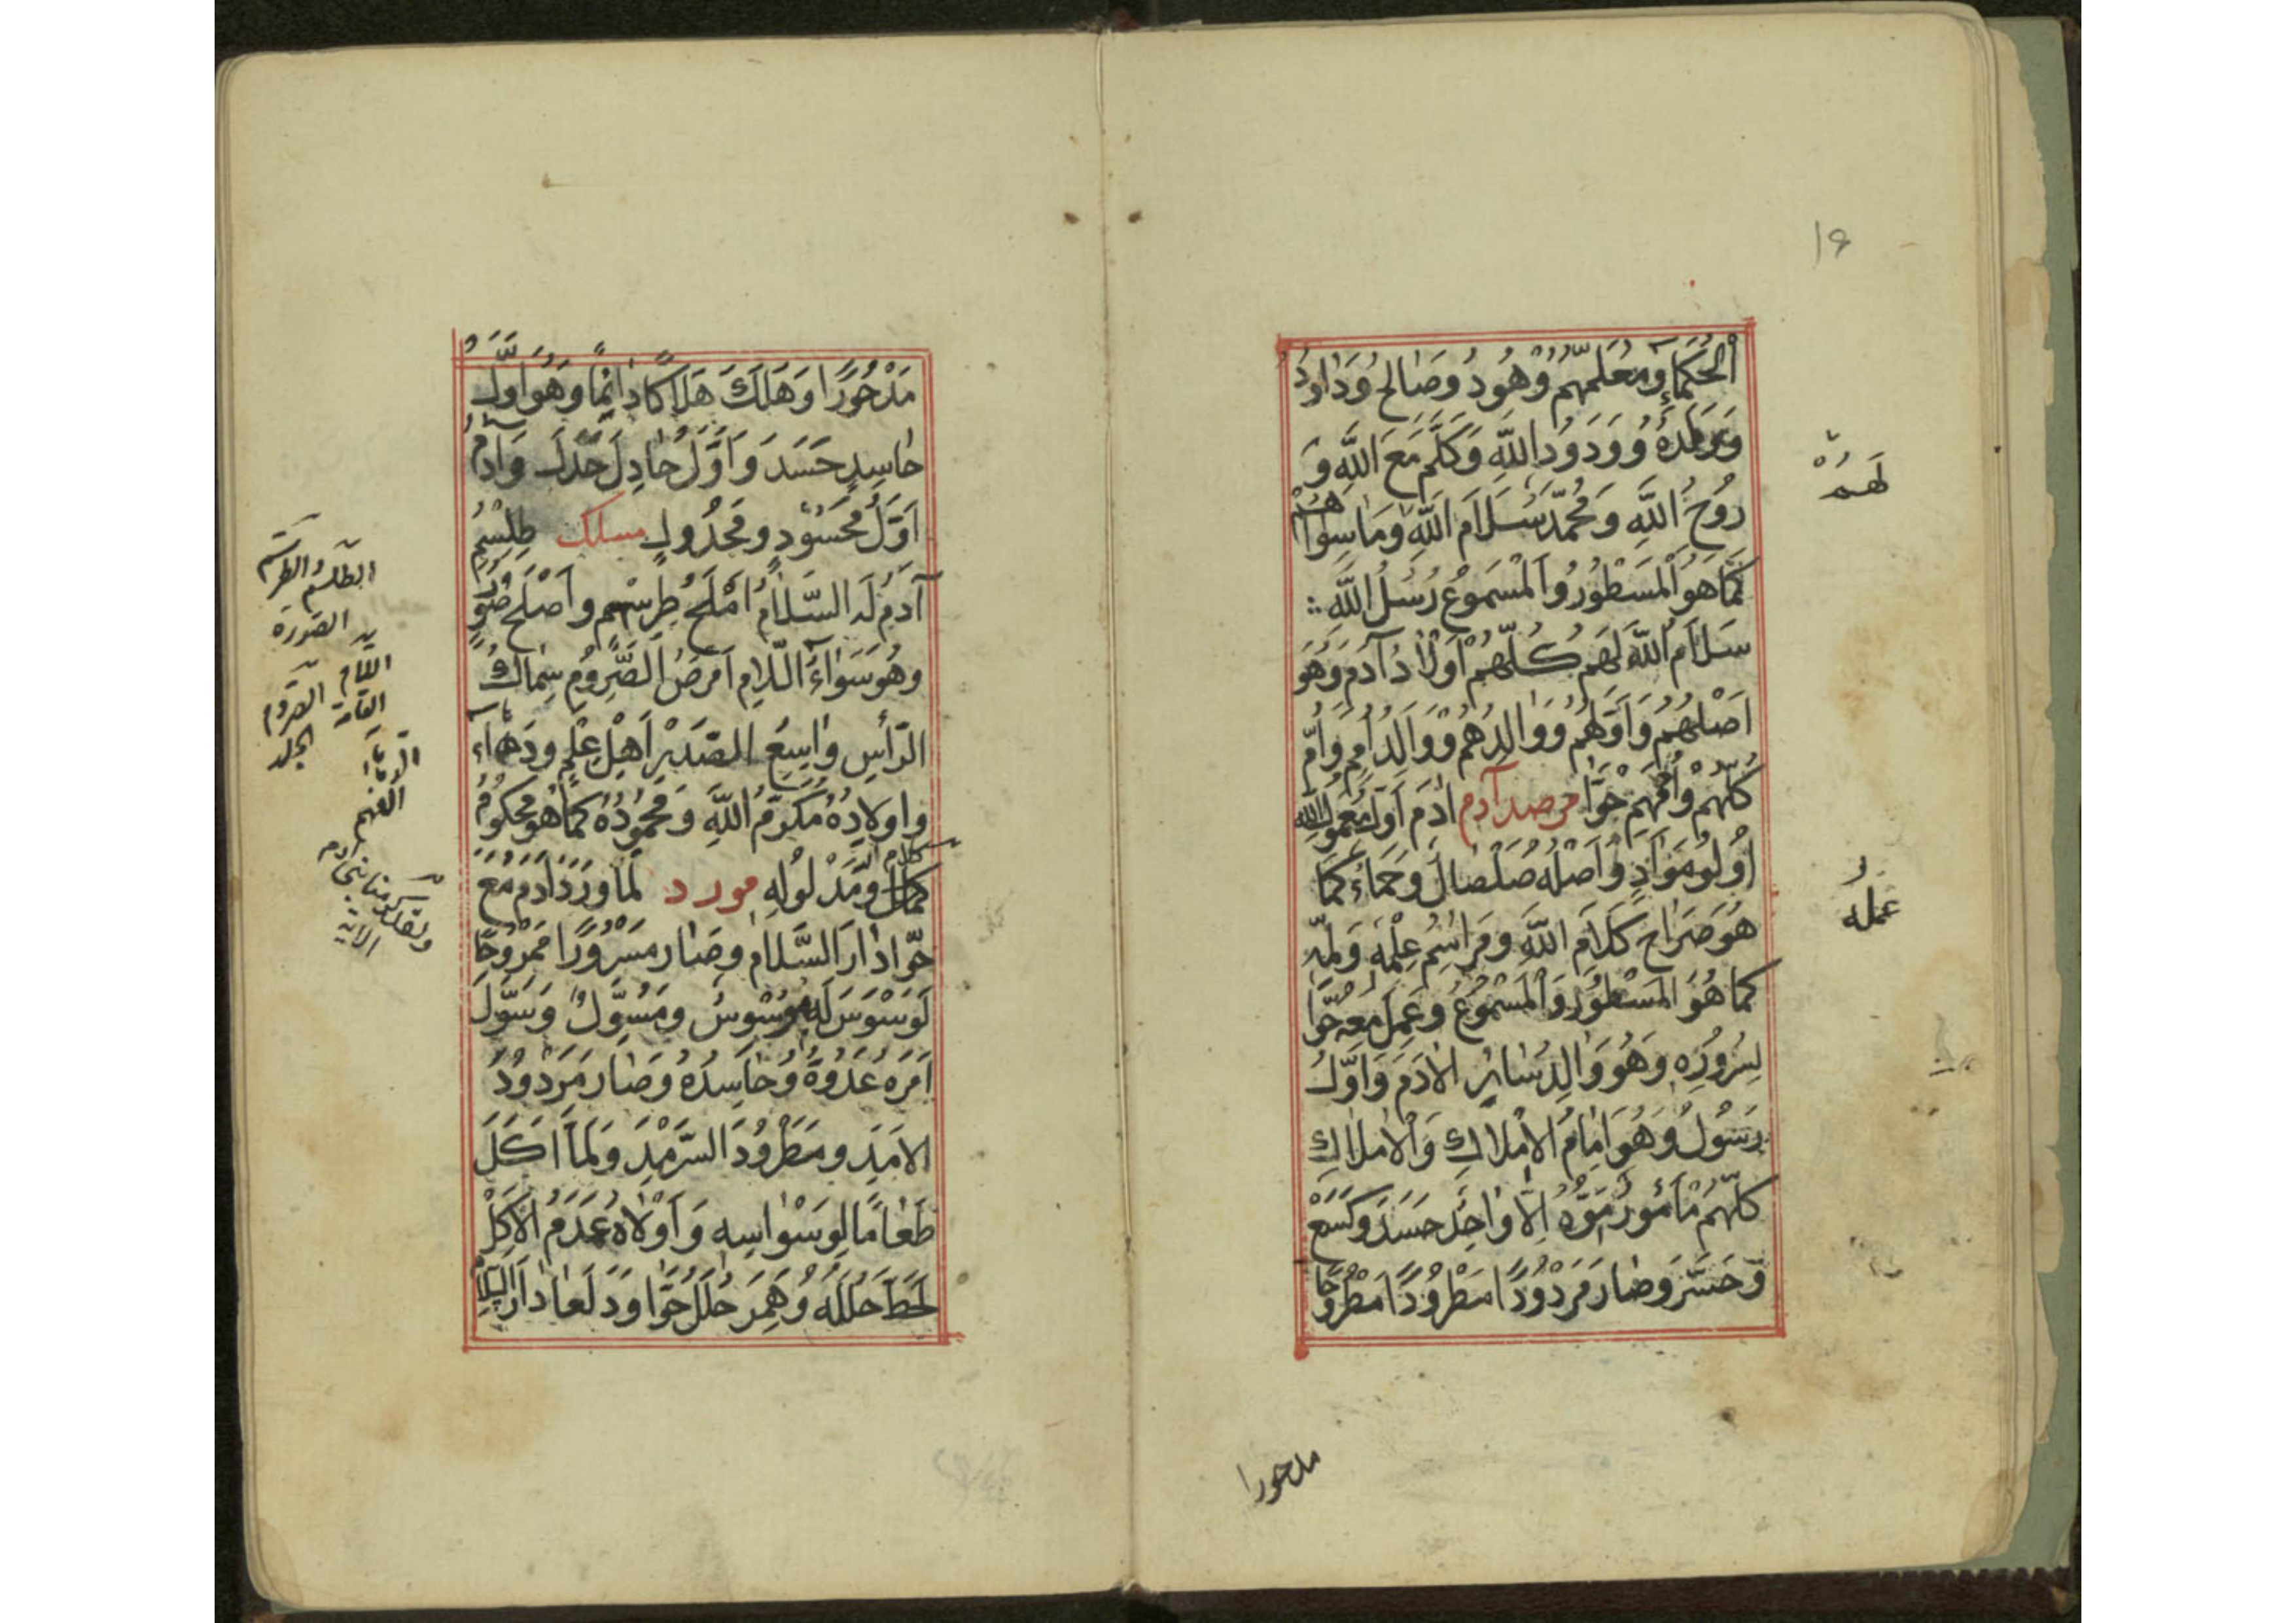 ١٦
اَلْحُكَمَآءِ وَمُعَلِّمُهُمْ وَهُودُ وَصَالِحُ وَدَاوُدُ
وَوَدُودُ اللّٰهِ وَكَلَّمَ مَعَ اللّٰهِ وَ
رُوحُ اللّٰهِ وَمُحَمَّدُ سَلَامُ اللّٰهِ وَمَا سِوَاهُمْ
كَمَا هُوَ الْمَسْطُورُ وَالْمَسْمُوعُ رُسُلُ اللّٰهِ
سَلَامُ اللّٰهِ لَهُمْ كُلُّهُمْ اَوْلَادُ آدَمَ وَهُوَ
اَصْلُهُمْ وَاَوَّلُهُمْ وَوَالِدُهُمْ وَوَالِدُ اُمِّهِمْ وَاُمُّ
كُلِّهِمْ وَاُمُّهُمْ حَوَّا مرصد آدم اٰدَمُ اَوَّلُ مَعْمُولِ اللّٰهِ
اُولُو مَوَادٍ وَاَصْلُهُ صَلْصَالُ وَحَمَاءُ كَمَا
هُوَ صَرَاحُ كَلَامِ اللّٰهِ وَمَرَاسِمُ عِلْمِهِ وَلَمِّهِ
كَمَا هُوَ الْمَسْطُورُ وَالْمَسْمُوعُ وَعَمِلَ مَعَهُ حَوَّا
لِسُرُورِهِ وَهُوَ وَالِدُ سَائِرِ الْاٰدَمِ وَاَوَّلُ
رَسُولٍ وَهُوَ اِمَامُ الْاَمْلَاكِ وَالْاَمْلَاكِ
كُلُّهُمْ مَأْمُورُ اِلَّا وَاحِدٌ حَسَدَ وَكَسَعَ
وَخَسَرَ وَصَارَ مَرْدُودًا مَطْرُودًا مَطْرُوحًا
لَهُمْ
عمله
مدحورا
مَدْحُورًا وَهَلَكَ هَلَاكًا دَائِمًا وَهُوَ اَوَّلُ
حَاسِدٍ حَسَدَ وَاَوَّلُ جَادِلٍ جَدَلَ وَآدَمُ
اَوَّلُ مَحْسُودٍ وَمَجْدُولٍ مسلك طِلِسْمُ
آدَمَ لَهُ السَّلَامُ اَمْلَحُ طِرِسْمٍ وَاَصْلَحُ صُوَرٍ
وَهُوَ سَوَآءُ اللَّامِ اَمْرَصُ الصَّرُومِ سِمَاكُ
الرَّأْسِ وَاسِعُ الصَّدْرِ اَهْلُ عِلْمٍ وَدَهَآءٍ
وَاَوْلَادُهُ مُكَرَّمُ اللّٰهِ وَمَحْمُودُهُ كَمَا هُوَ مَحْكُومُ
كلام اللّٰهِ وَمَدْلُولِهِ مورد لَمَّا وَرَدَ اٰدَمُ مَعَ
حَوَّا دَارَ السَّلَامِ وَصَارَ مَسْرُورًا مَمْرُوحًا
لَوَسْوَسَ لَهُ مُوَسْوِسُ وَمُسَوِّلٌ وَسَوَّلَ
اَمْرَهُ عَدُوَّهُ وَحَاسِدُهُ وَصَارَ مَرْدُودُ
الْاَمَدِ وَمَطْرُودَ السَّرْمَدِ وَلَمَّا اَكَلَ
طَعَامًا لِوَسْوَاسِهِ وَاَوْلَاهُ عَدَمُ الْاَكْلِ
لَحَطَّ حُلَلُهُ وَهَمَرَ حُلَلُ حَوَّا وَوَدَعَا دَارَ السَّلَامِ
الطلسم والطرسم
الصورة
اللام
القامة
الصروم
الجلد
الدهاء
الفهم
ولقد كرمنا بنى آدم
الاية